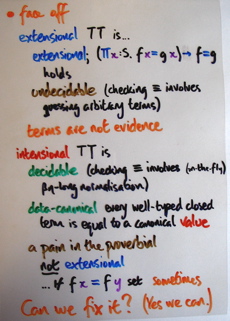 • face off
extensional TT is...
extensional; (Πx:S. f x = g x) → f = g
holds
undecidable (checking ≡ involves
guessing arbitrary terms)
terms are not evidence
intensional TT is
decidable (checking ≡ involves (on-the-fly)
βη-long normalisation)
data-canonical every well-typed closed
term is equal to a canonical value
a pain in the proverbial
not extensional
... if f x = f y set sometimes
Can we fix it? (Yes we can.)